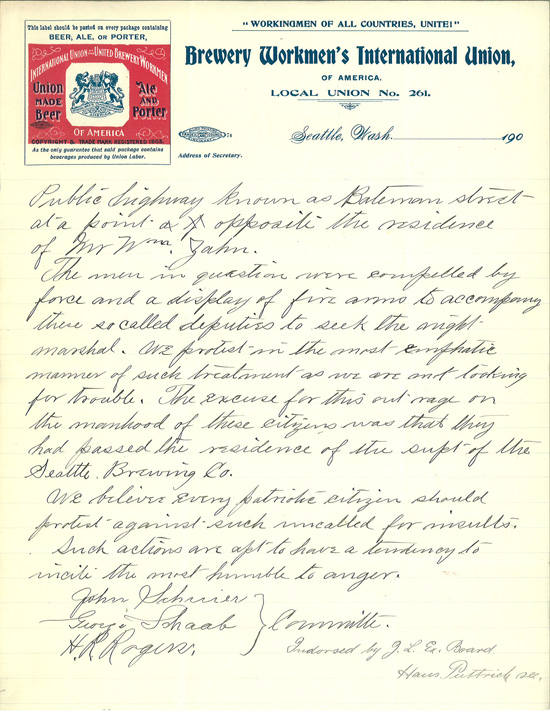 This label should be pasted on every package containing
BEER, ALE, OR PORTER,
INTERNATIONAL UNION OF THE UNITED BREWERY WORKMEN
Union
MADE
Beer
Ale
AND
Porter
OF AMERICA
COPYRIGHT & TRADE MARK REGISTERED 1903.
As the only guarantee that said package contains
beverages produced by Union Labor.
"WORKINGMEN OF ALL COUNTRIES, UNITE!"
Brewery Workmen's International Union,
OF AMERICA.
LOCAL UNION No. 261.
Seattle, Wash. 190
Address of Secretary.
Public highway known as Bateman street
at a point opposite the residence
of Mr Wm. Zahn.
The men in question were compelled by
force and a display of fire arms to accompany
these so called deputies to seek the night
marshal. We protest in the most emphatic
manner of such treatment as we are not looking
for trouble. The excuse for this out rage on
the manhood of these citizens was that they
had passed the residence of the supt of the
Seattle Brewing Co.
We believe every patriotic citizen should
protest against such uncalled for insults.
Such actions are apt to have a tendency to
incite the most humble to anger.
John
George Shaab
H.R. Rogers.
Committe.
Indorsed by J. L. Ex. Board
Hans Puttrick sec.